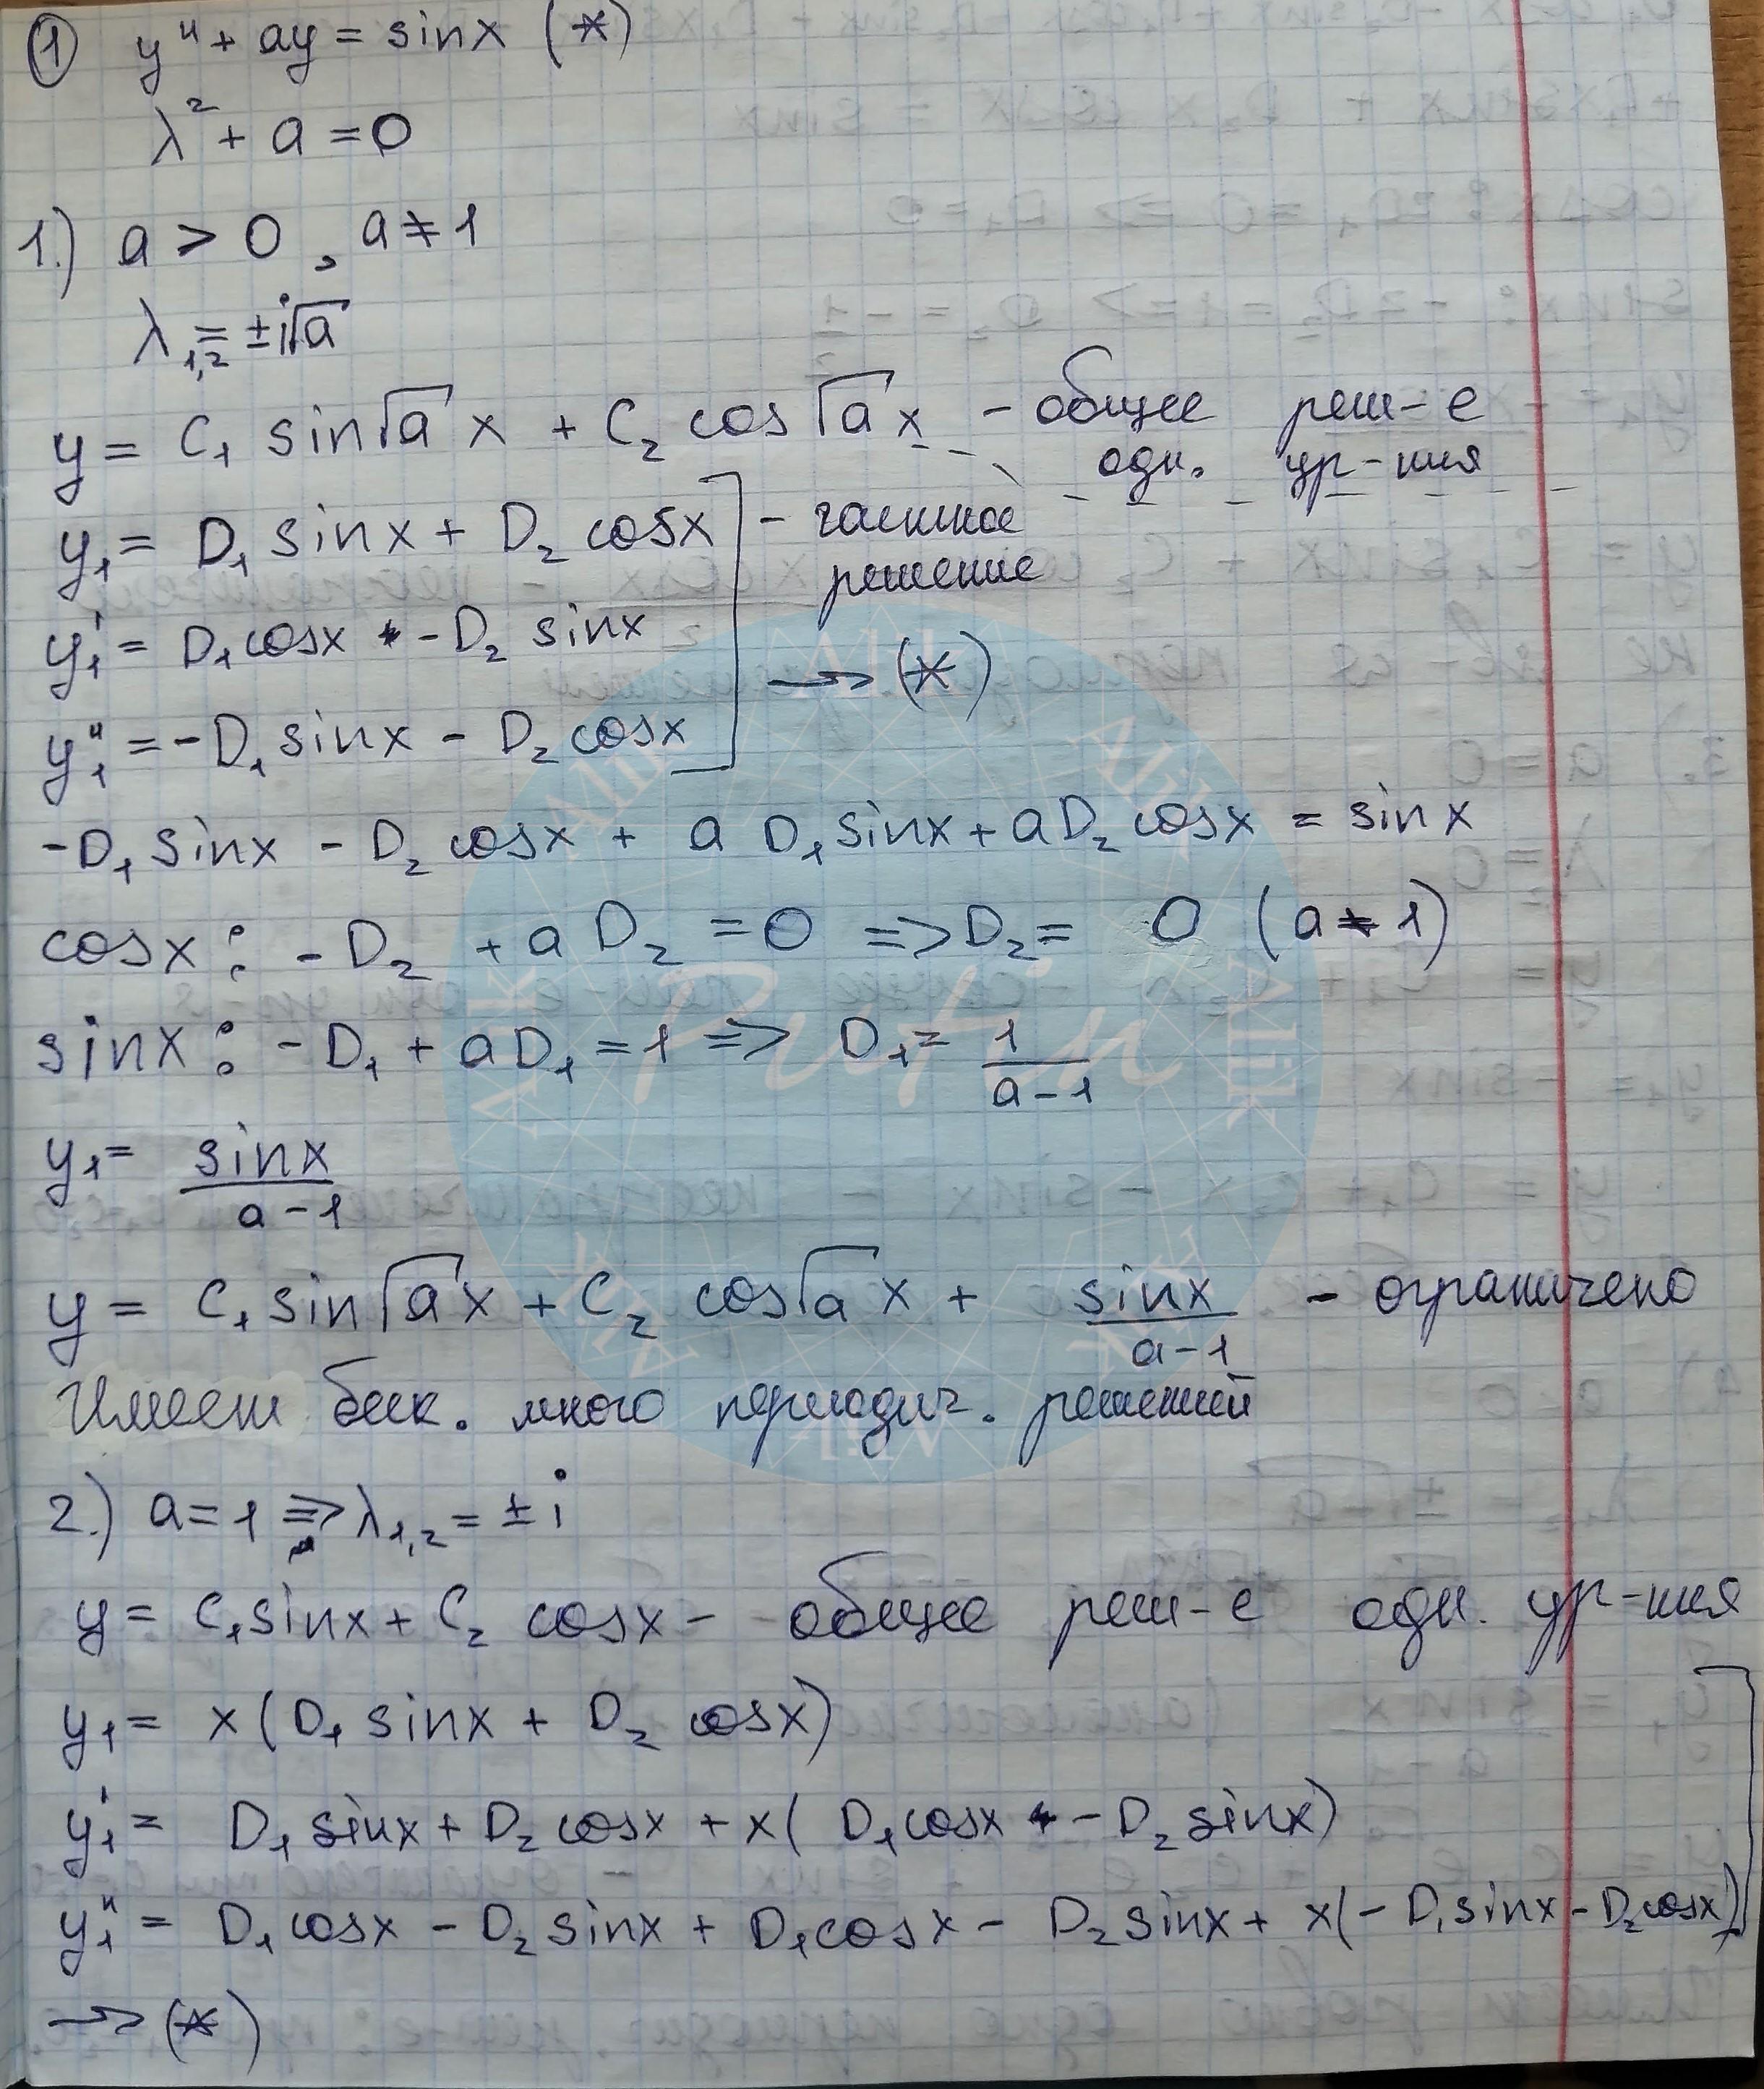 ① y'' + ay = sinx (*)
λ² + a = 0
1.) a > 0, a ≠ 1
λ₁,₂ = ±i√a
y = C₁ sin√a x + C₂ cos√a x - общее реш-е
одн. ур-ния
y₁ = D₁ sinx + D₂ cosx - частное
решение
y₁' = D₁cosx - D₂ sinx
→ (*)
y₁'' = -D₁ sinx - D₂ cosx
-D₁ sinx - D₂ cosx + a D₁ sinx + aD₂ cosx = sinx
cosx: -D₂ + a D₂ = 0 => D₂ = 0 (a ≠ 1)
sinx: -D₁ + aD₁ = 1 => D₁ = 1/(a-1)
y₁ = sinx/(a-1)
y = C₁ sin√a x + C₂ cos√a x + sinx/(a-1) - ограничено
Имеет беск. много периодич. решений
2.) a = 1 => λ₁,₂ = ± i
y = C₁sinx + C₂ cosx - общее реш-е одн. ур-ния
y₁ = x(D₁ sinx + D₂ cosx)
y₁' = D₁ sinx + D₂ cosx + x( D₁cosx - D₂ sinx)
y₁'' = D₁ cosx - D₂ sinx + D₁cosx - D₂ sinx + x(- D₁sinx - D₂cosx)
→ (*)
Putin
Alik
Alik
Alik
Alik
Alik
Alik
Alik
Alik